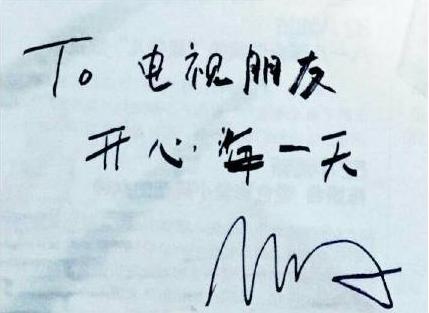 To 电视朋友
开心每一天